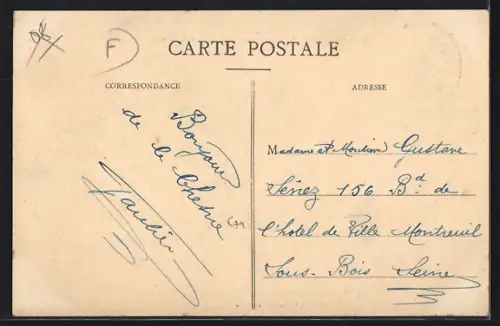 F
CARTE POSTALE
CORRESPONDANCE
ADRESSE
Bonjour
de la Chesne
Madame et Monsieur Gustave
Sénez 156 Bd. de
l'hotel de Ville Montreuil
Sous-Bois Seine